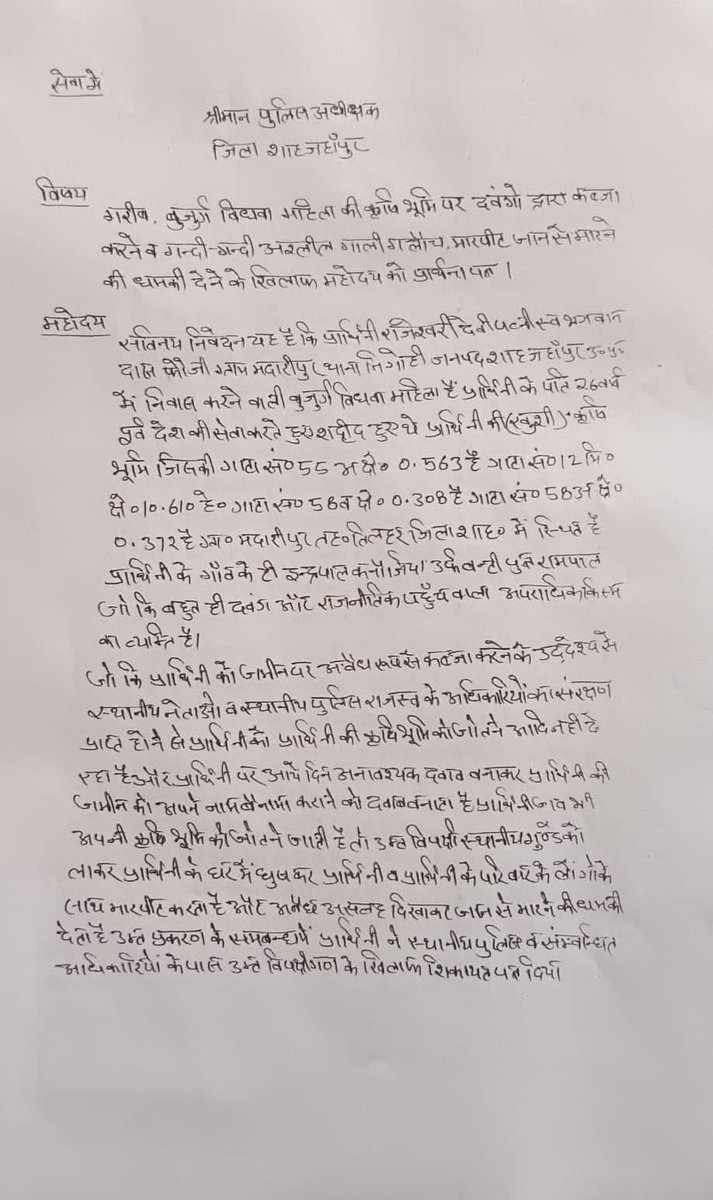 सेवा में
श्रीमान पुलिस अधीक्षक
जिला शाहजहाँपुर
विषय गरीब, बुजुर्ग विधवा महिला की कृषि भूमि पर दबंगो द्वारा कब्जा
करने व गन्दी-गन्दी अश्लील गाली गलौच, मारपीट जान से मारने
की धमकी देने के खिलाफ महोदय को प्रार्थना पत्र ।
महोदय सविनय निवेदन यह है कि प्रार्थिनी राजेश्वरी देवी पत्नी स्व भगवान
दास फौजी ग्राम मदारीपुर थाना निगोही जनपद शाहजहाँपुर उ०प्र०
में निवास करने वाली बुजुर्ग विधवा महिला है प्रार्थिनी के पति 26 वर्ष
पूर्व देश की सेवा करते हुए शहीद हुए थे प्रार्थिनी की कृषि
भूमि जिसकी गाटा सं० 55 अ क्षे० 0.563 है गाटा सं० 12 मि०
क्षे० 10.610 हे० गाटा सं० 58ब क्षे० 0.308 है गाटा सं० 583 क्षे०
0.372 है ग्रा० मदारीपुर तह० तिलहर जिला शाह० में स्थित है
प्रार्थिनी के गाँव के ही इन्द्रपाल कनौजिया उर्फ बन्टी पुत्र रामपाल
जो कि बहुत ही दबंग और राजनीतिक पहुँच वाला अपराधिक किस्म
का व्यक्ति है।
जो कि प्रार्थिनी की जमीन पर अवैध रूप से कब्जा करने के उद्देश्य से
स्थानीय नेताओ व स्थानीय पुलिस राजस्व के अधिकारियों का संरक्षण
प्राप्त होने से प्रार्थिनी को प्रार्थिनी की कृषि भूमि को जोतने आदि नही दे
रहा है और प्रार्थिनी पर आये दिन अनावश्यक दबाव बनाकर प्रार्थिनी की
जमीन को अपने नाम बैनामा कराने को दबाव बनाता है प्रार्थिनी जब भी
अपनी कृषि भूमि को जोतने जाती है तो उक्त विपक्षी स्थानीय गुण्डे को
लाकर प्रार्थिनी के घर में घुसकर प्रार्थिनी व प्रार्थिनी के परिवार के लोंगो के
साथ मारपीट करता है और अवैध असलह दिखाकर जान से मारने की धमकी
देता है उक्त प्रकरण के सम्बन्ध में प्रार्थिनी ने स्थानीय पुलिस व संम्बन्धित
अधिकारियों के पास उक्त विपक्षीगण के खिलाफ शिकायत पत्र दिया